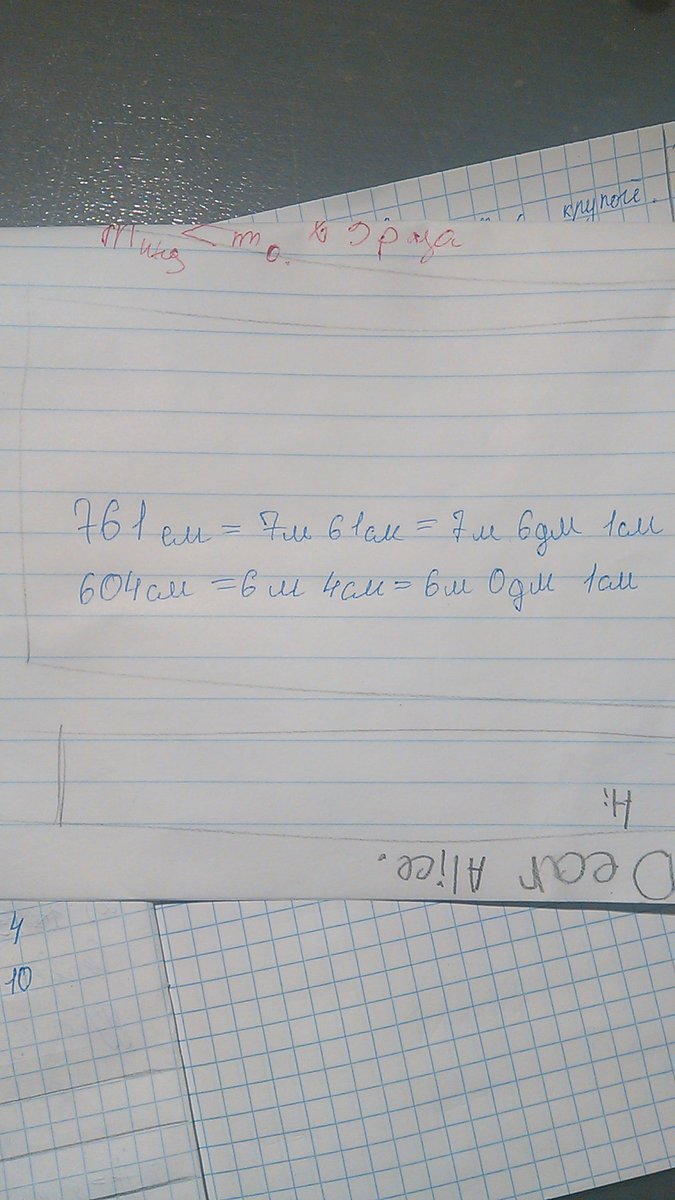 крупой.
m инд < m о.
761 см = 7м 61см = 7м 6дм 1см
604см = 6м 4см = 6м 0дм 1см
Hi
Dear Alice.
4
10